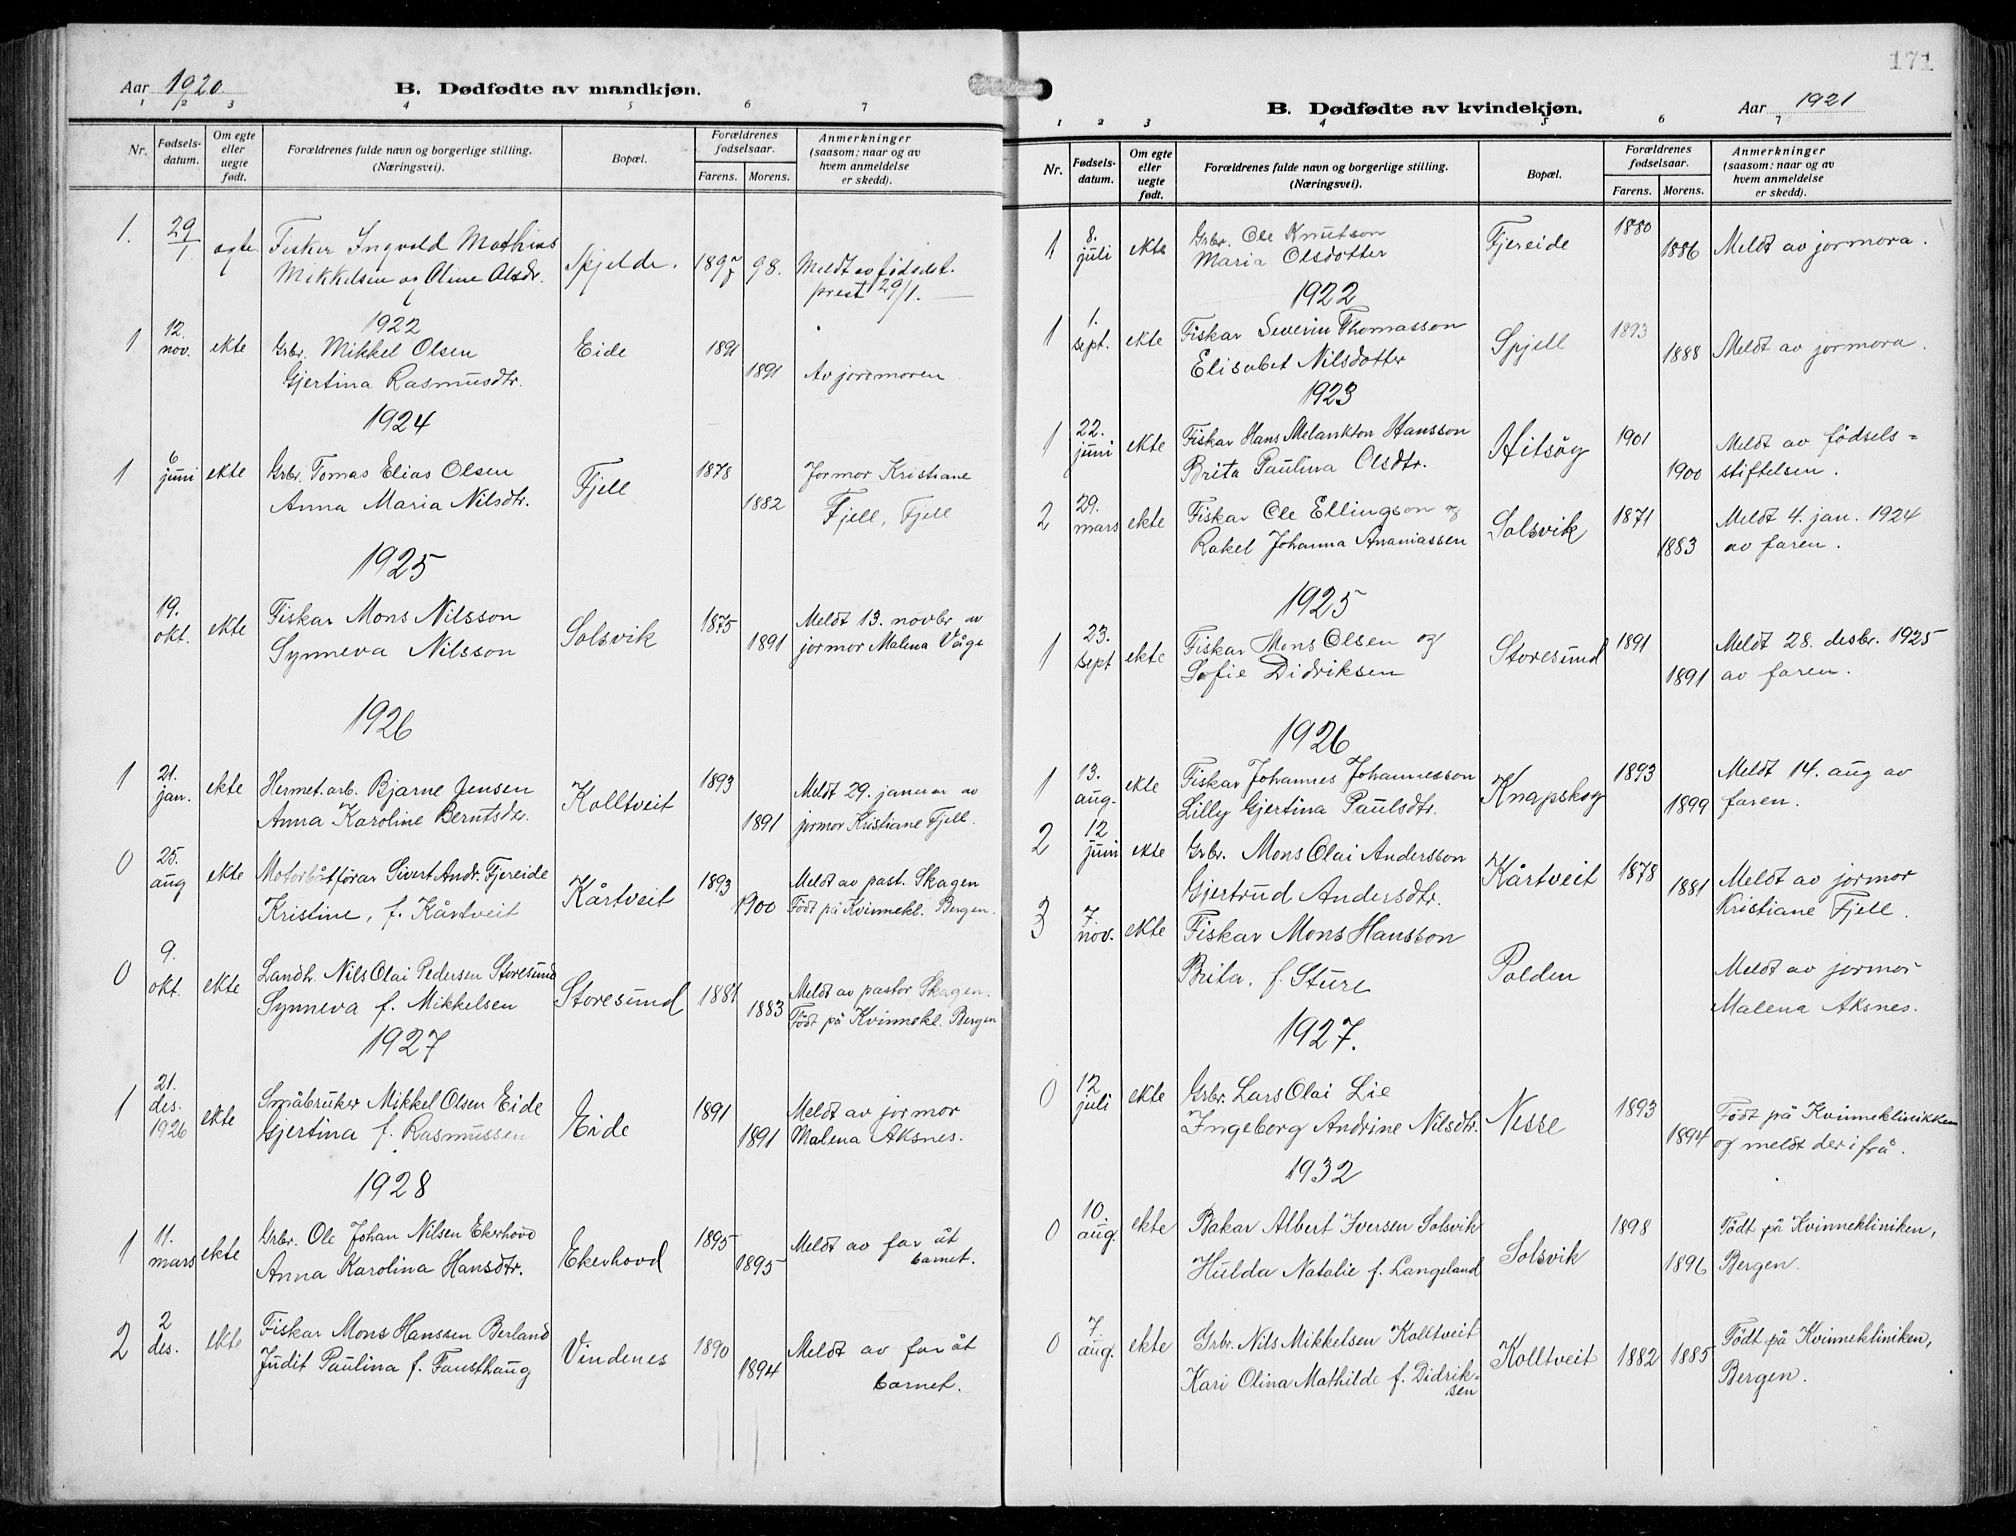 Aar 1920
B. Dødfødte av mandkjøn.
1 2 3 4 5 6 7
Nr. Fødsels-datum. Om egte eller uegte født. Forældrenes fulde navn og borgerlige stilling. (Næringsvei). Bopæl. Forældrenes fødselsaar. Farens. Morens. Anmerkninger (saasom: naar og av hvem anmeldelse er skedd).
1. 29/1 egte. Fisker Ingvald Mathias Spjelde. 1897 98. Meldt av fødselst.
Mikkelsen og Oline Olsdr. prest 29/1.
1922
1 12. nov. ekte Grbr. Mikkel Olsen Eide 1891
Gjertina Rasmusdtr. 1891 Av jormoren
1924
1 6 juni ekte Grbr. Tomas Elias Olsen Fjell 1878 Jormor Kristiane
Anna Maria Nilsdtr. 1882 Fjell, Fjell
1925
19. okt. ekte Fiskar Mons Nilsson Solsvik 1875 Meldt 13. novbr av
Synneva Nilsson 1891 jormor Malena Våge
1926
1 21. jan. ekte Hermet.arb. Bjarne Jensen Kolltveit 1893 Meldt 29. januar av
Anna Karoline Berntsdtr. 1891 jormor Kristiane Fjell.
0 25. aug ekte Motorbåtförar Sivert Andr. Fjereide Kårtveit 1893 Meldt av past. Skagen
Kristine, f. Kårtveit 1900 Födt på Kvinnekl. Bergen.
0 9. okt. ekte Landh. Nils Olai Pedersen Storesund Storesund 1881 Meldt av pastor Skagen.
Synneva f. Mikkelsen 1883 Födt på Kvinnekl. Bergen
1927
1 21. des. 1926 ekte Småbruker Mikkel Olsen Eide Eide 1891 Meldt av jormor
Gjertina f. Rasmussen 1891 Malena Aksnes.
1928
1 11. mars ekte Grbr. Ole Johan Nilsen Ekerhovd Ekerhovd 1895 Meldt av far åt
Anna Karolina Hansdtr. 1895 barnet.
2 2 des. ekte Fiskar Mons Hanssen Berland Vindenes 1890 Meldt av far åt
Judit Paulina f. Fausthaug 1894 barnet.
171
B. Dødfødte av kvindekjøn. Aar 1921
1 2 3 4 5 6 7
Nr. Fødsels-datum. Om egte eller uegte født. Forældrenes fulde navn og borgerlige stilling. (Næringsvei). Bopæl. Forældrenes fødselsaar. Farens. Morens. Anmerkninger (saasom: naar og av hvem anmeldelse er skedd).
1 8. juli ekte Grbr. Ole Knutson Fjereide 1880
Maria Olsdotter 1886 Meldt av jormora.
1922
1 1. sept. ekte Fiskar Severin Thomasson Spjell 1893
Elisabet Nilsdotter 1888 Meldt av jormora.
1923
1 22. juni ekte Fiskar Hans Melankton Hansson Hitsøy 1901 Meldt av fødsels=
Brita Paulina Olsdtr. 1900 stiftelsen.
2 29. mars ekte Fiskar Ole Ellingson og Solsvik 1871 Meldt 4. jan. 1924
Rakel Johanna Ananiassen 1883 av faren.
1925
1 23. sept ekte Fiskar Mons Olsen og Storesund 1891 Meldt 28. desbr. 1925
Sofie Didriksen 1891 av faren.
1926
1 13. aug. ekte Fiskar Johannes Johannesson Knapskog 1893 Meldt 14. aug av
Lilly Gjertina Paulsdtr. 1899 faren.
2 12 juni ekte Grbr. Mons Olai Andersson Kårtveit 1878 Meldt av jormor
Gjertrud Andersdtr. 1881 Kristiane Fjell.
3 7. nov. ekte Fiskar Mons Hansson
Brita, f. Sture Polden Meldt av jormor
Malena Aksnes.
1927.
0 12 juli ekte Grbr. Lars Olai Lie Nesse 1893 Födt på Kvinneklinikken
Ingeborg Andrine Nilsdtr. 1894 og meldt der ifrå.
1932
0 10. aug. ekte Bakar Albert Iversen Solsvik Solsvik 1898 Födt på Kvinnekliniken,
Hulda Natalie f. Langeland 1896 Bergen.
0 7 aug. ekte Grbr. Nils Mikkelsen Kolltveit Kolltveit 1882 1885 Födt på Kvinnekliniken,
Kari Olina Mathilde f. Didrik= Bergen.
sen